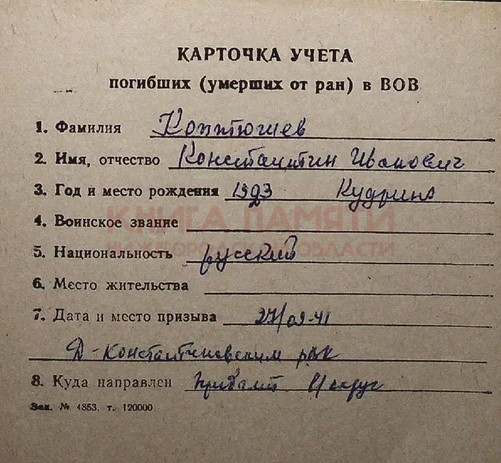 КАРТОЧКА УЧЕТА
погибших (умерших от ран) в ВОВ
1. Фамилия Коптюшев
2. Имя, отчество Константин Иванович
3. Год и место рождения 1923 Кудрино
4. Воинское звание
КНИГА ПАМЯТИ
НИЖЕГОРОДСКОЙ ОБЛАСТИ
5. Национальность русский
6. Место жительства
7. Дата и место призыва 27/09-41
Д-Константиновским рвк
8. Куда направлен
Зак. № 4853, т. 120000